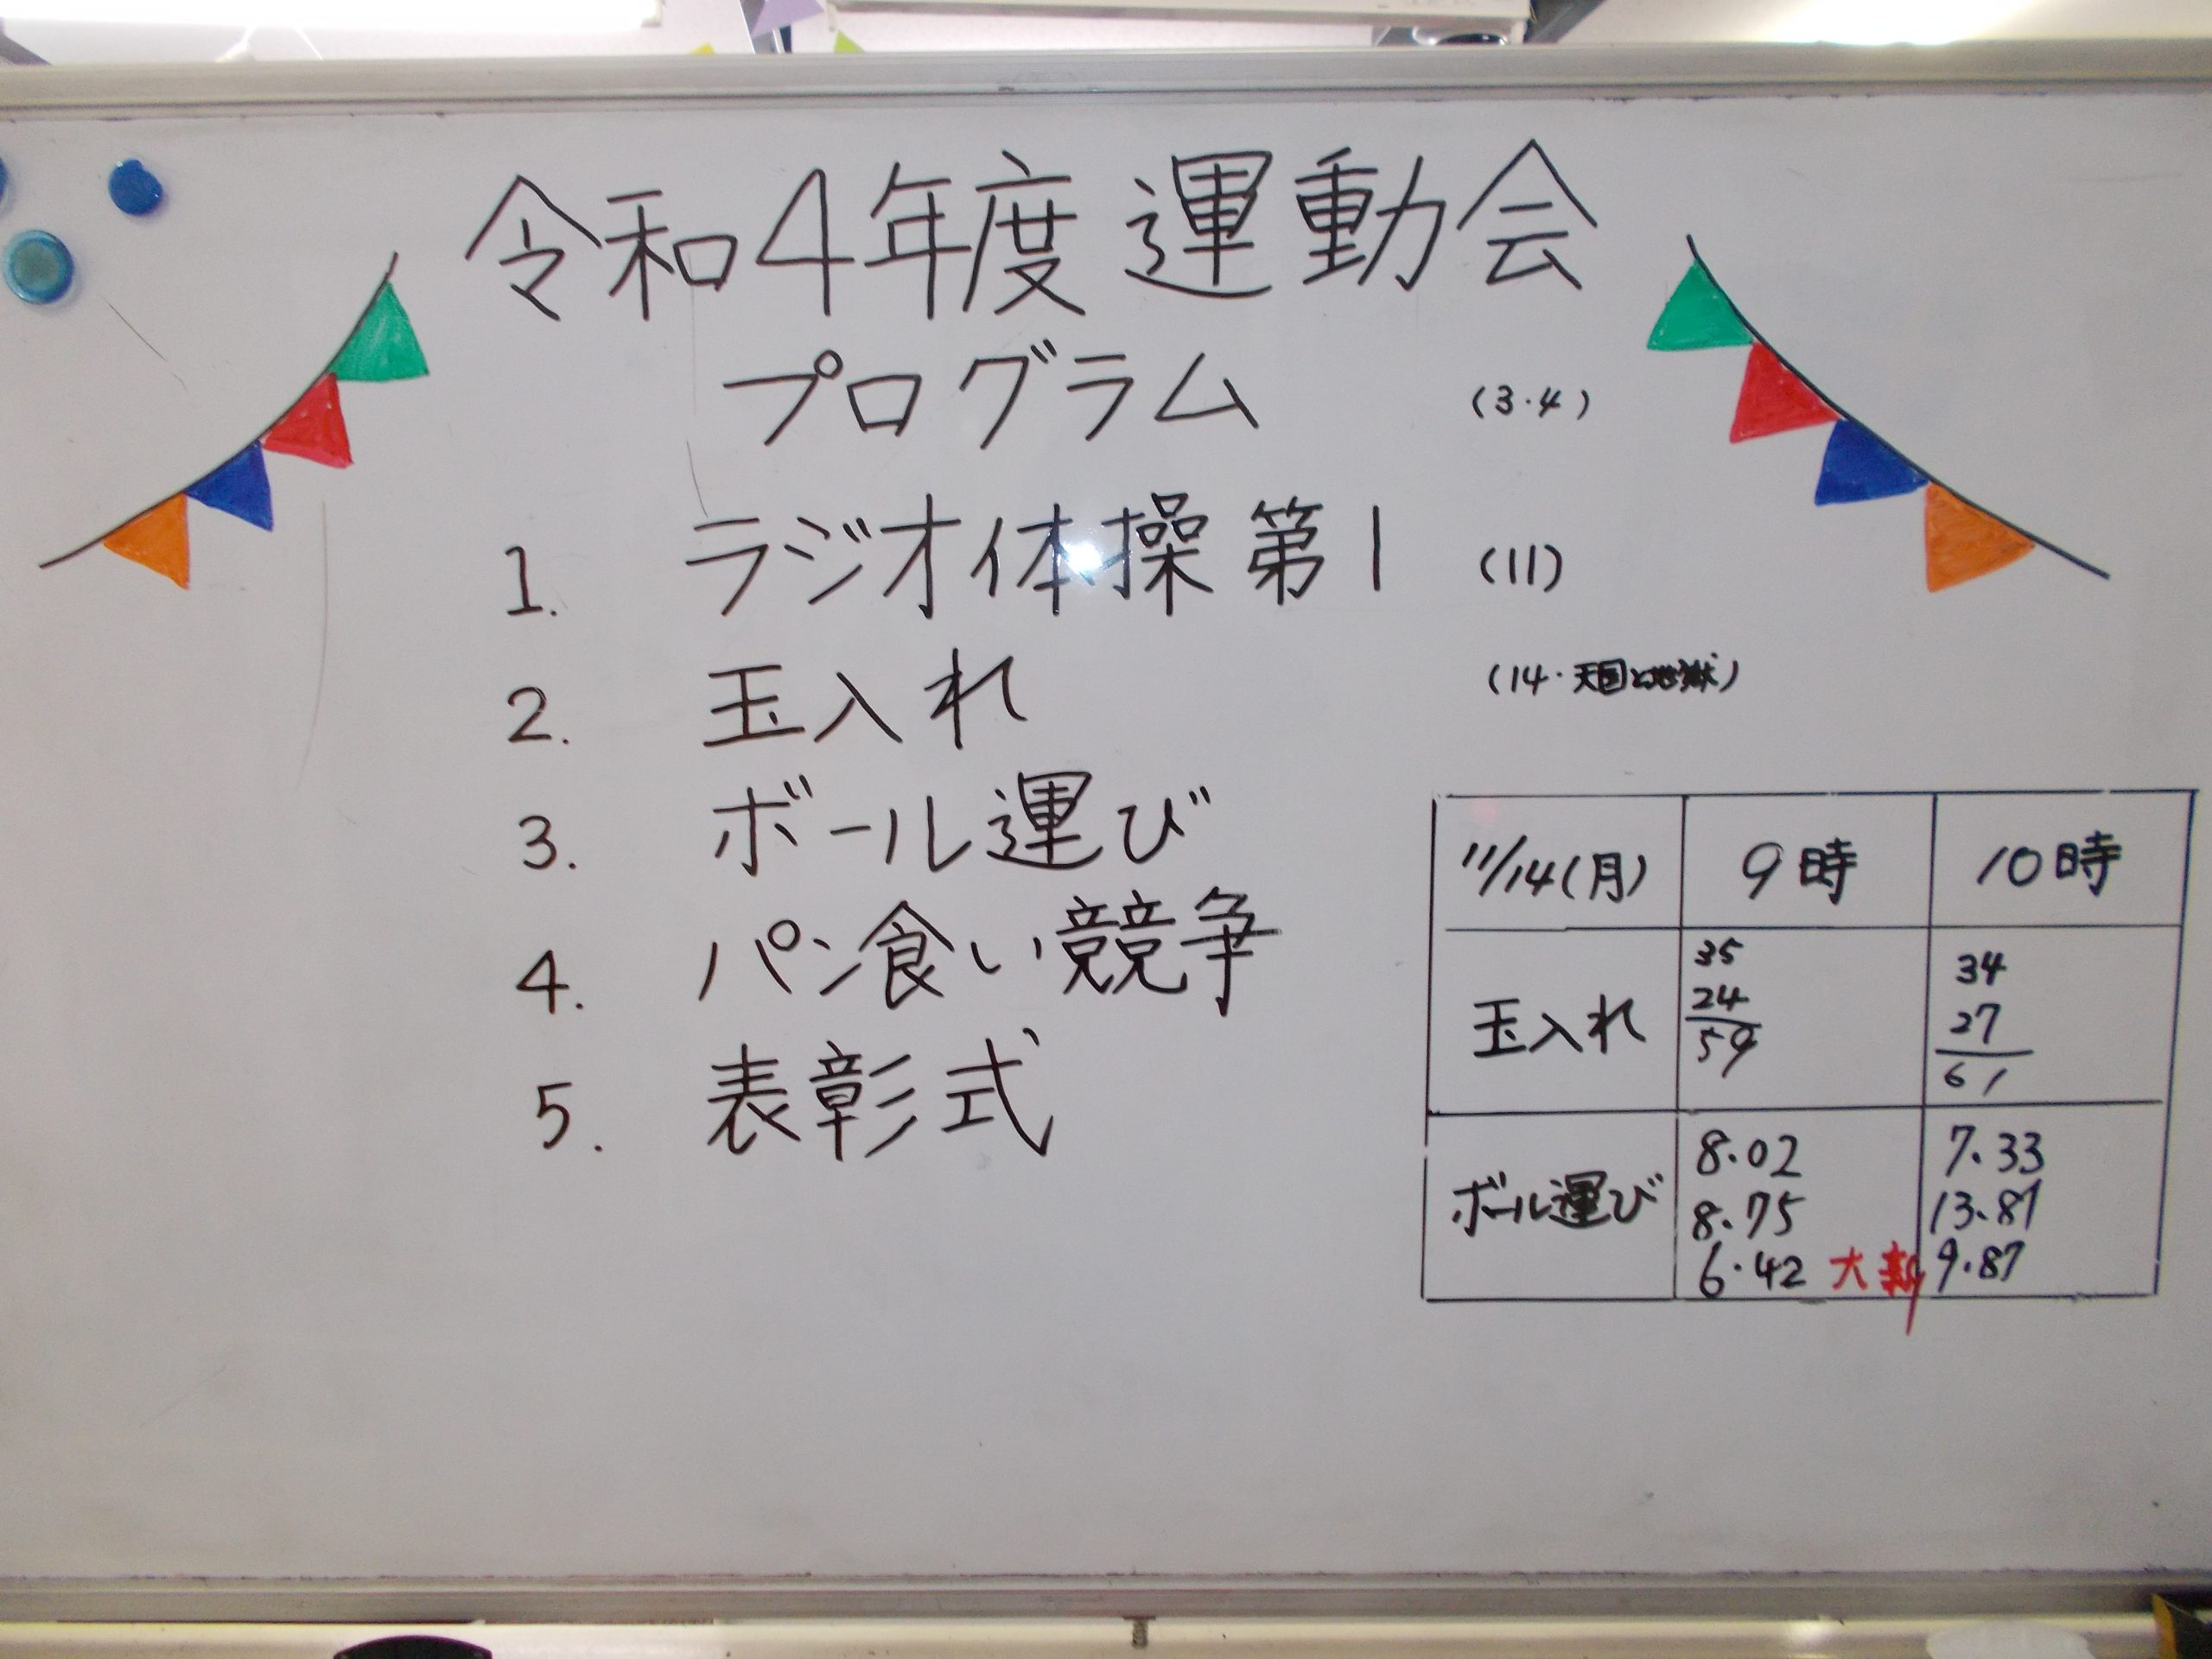 令和4年度 運動会
プログラム (3・4)
1. ラジオ体操 第1 (11)
2. 玉入れ (14・天国と地獄)
3. ボール運び
4. パン食い競争
5. 表彰式
11/14(月) 9時 10時
玉入れ
35
24
59
34
27
61
ボール運び
8.02
8.75
6.42 大新
7.33
13.81
9.87